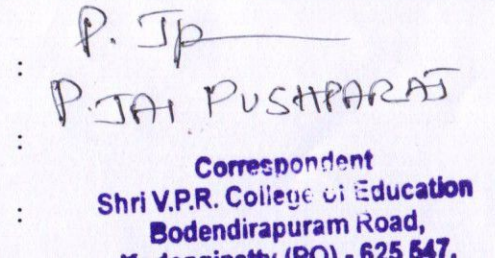 P. Jp
P. JAI PUSHPARAJ
Correspondent
Shri V.P.R. College of Education
Bodendirapuram Road,
(PO) - 625 547.